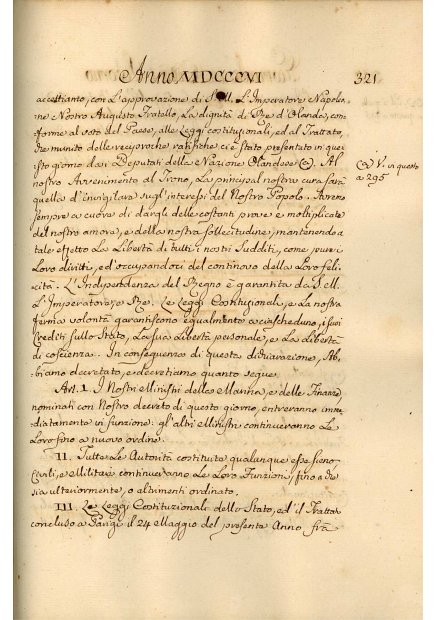 Anno MDCCCVI
321
accettianto, con L'approvazione di S. M. L'Imperatore Napoleo-
ne Nostro Augusto Fratello, La dignità di Rè d'Olanda, con-
forme al voto del Paese, alle Leggi costituzionali, ed al Trattato,
che munito delle reciproche ratifiche ci è stato presentato in que-
sto giorno dai Deputati della Nazione Olandese (a). Al
nostro Avvenimento al Trono, La principal nostra cura sarà
quella d'invigilare sugl'interessi del Nostro Popolo. Avremo
sempre a cuore di dargli delle costanti prove e moltiplicate
del nostro amore, e della nostra sollecitudine, mantenendo a
tale effetto La Libertà di tutti i nostri Sudditi, come pure i
Loro diritti, ed occupandoci del continovo della Loro feli-
cità. L'Indipendenza del Regno è garantita da S. M.
L'Imperatore, e Re. Le Leggi Costituzionali, e La nostra
ferma volontà garantiscono egualmente a ciascheduno, i suoi
Crediti sullo Stato, La sua Libertà personale, e La Libertà
di coscienza. In conseguenza di questa dichiarazione, Ab-
biamo decretato, e decretiamo quanto segue.
Art. I. I Nostri Ministri della Marina, e delle Finanze
nominati con Nostro decreto di questo giorno, entreranno imme-
diatamente in funzione: gli altri Ministri continueranno Le
Loro fino a nuovo ordine.
II. Tutte Le Autorità costituite qualunque esse sieno
Civili, e Militari continueranno Le Loro Funzioni, fino a che
sia ulteriormente, o altrimenti ordinato.
III. Le Leggi Costituzionali dello Stato, ed il Trattato
concluso a Parigi il 24 Maggio del presente Anno frà
(a) V. in questo
a 295